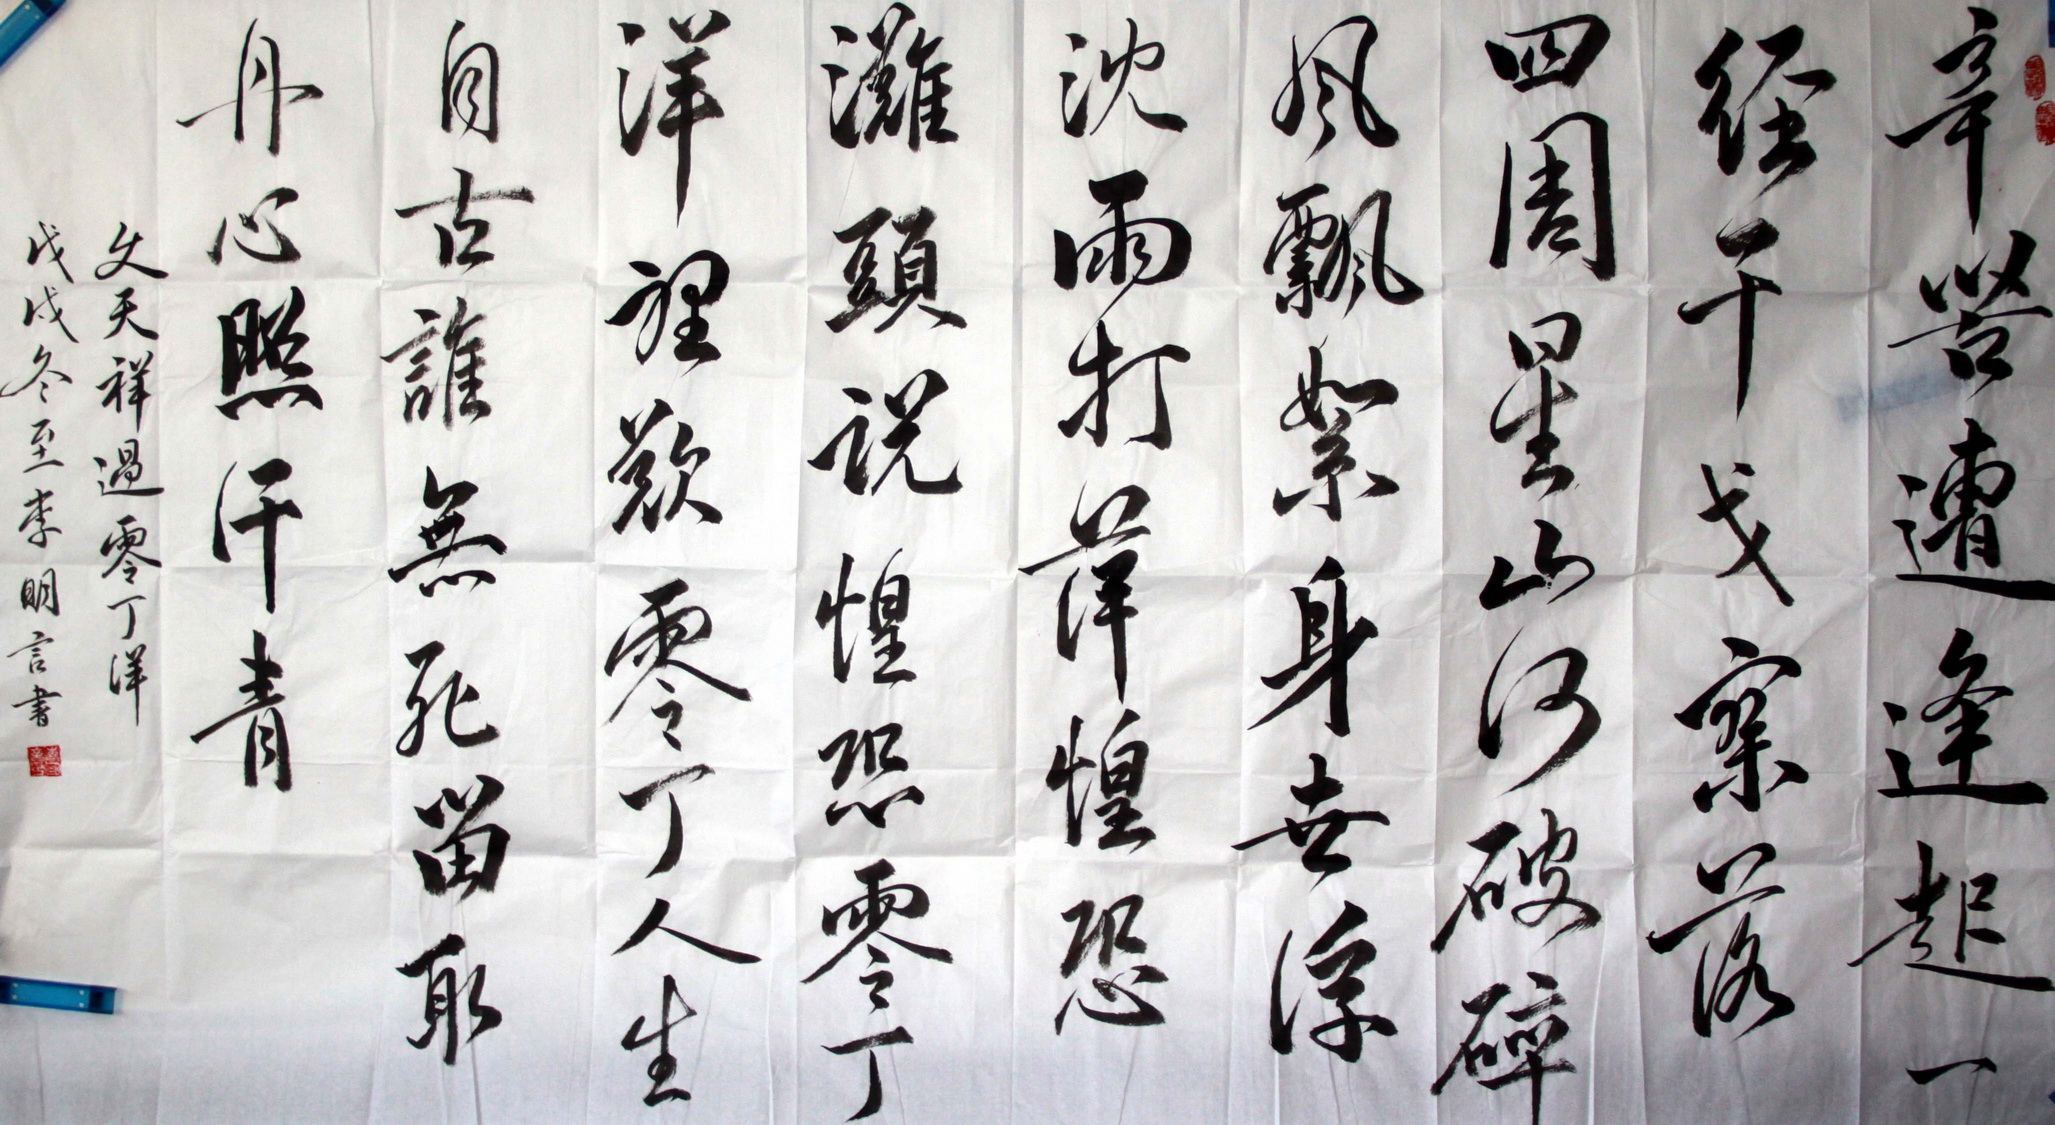 辛苦遭逢起一
経干戈寥落
四周星山河破碎
風飄絮身世浮
沈雨打萍惶恐
灘頭説惶恐零丁
洋裡歎零丁人生
自古誰無死留取
丹心照汗青
文天祥過零丁洋
戊戌冬至李明言書